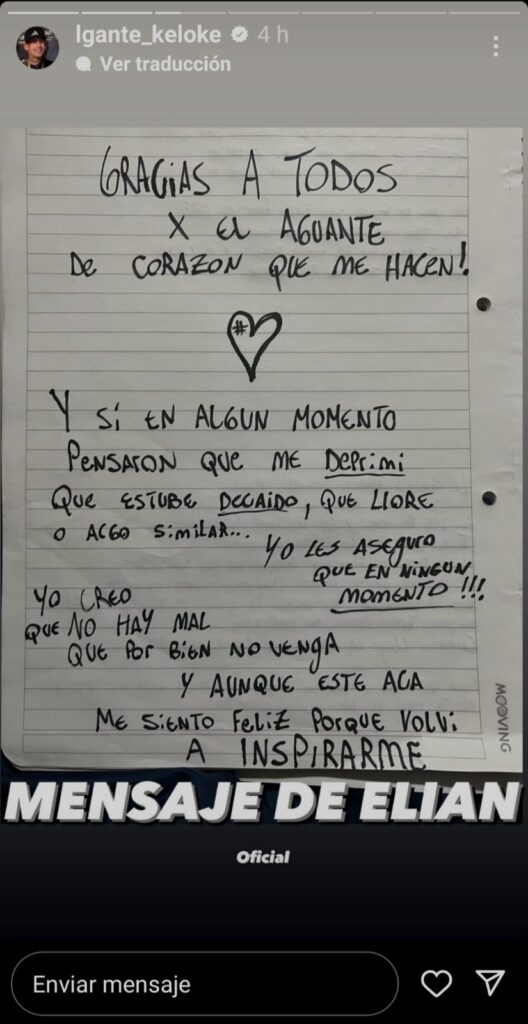 lgante_keloke 4 h
Ver traducción
GRACIAS A TODOS
X EL AGUANTE
DE CORAZON QUE ME HACEN!
#
Y SÍ EN ALGUN MOMENTO
PENSARON QUE ME DEPRIMI
QUE ESTUBE DECAIDO, QUE LLORE
O ALGO SIMILAR...
YO LES ASEGURO
QUE EN NINGUN
MOMENTO!!!
YO CREO
QUE NO HAY MAL
QUE POR BIEN NO VENGA
Y AUNQUE ESTE ACA
ME SIENTO FELIZ PORQUE VOLVI
A INSPIRARME
MOOVING
MENSAJE DE ELIAN
Oficial
Enviar mensaje